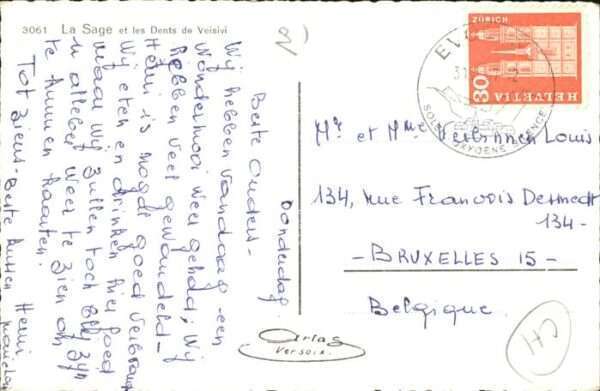 3061 La Sage et les Dents de Veisivi
Donderdag.
Beste Ouders-
Wij hebben vandaag een
wondermooi weer gehad; wij
hebben veel gewandeld-
Henri is nogal goed verbrand
Wij eten en drinken hier goed
maar wij zullen toch blij zijn
U allebei weer te zien om
te kunnen kaarten.
Tot Ziens - Beste kussen Henri
ZÜRICH
HELVETIA
30
EVO
SOLEIL OXYGENE
Mr et Mme Verbinnen Louis
134, Rue François Dermedt
134-
- BRUXELLES 15 -
Belgique.
Artas
Versoix
CH